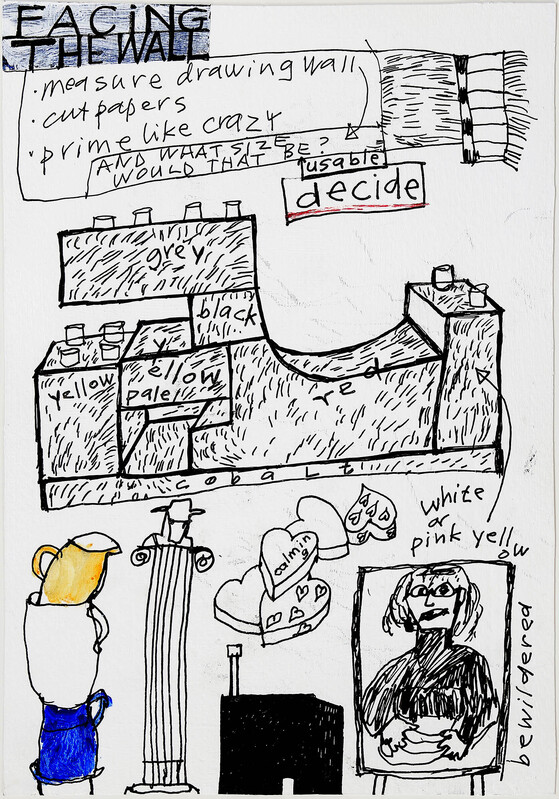 FACING
THE WALL
· measure drawing wall
· cut papers
· prime like crazy
AND WHAT SIZE
WOULD THAT BE?
usable
decide
grey
black
yellow
pale
yellow
red
cobalt
white
or
pink yell
ow
calming
bewildered